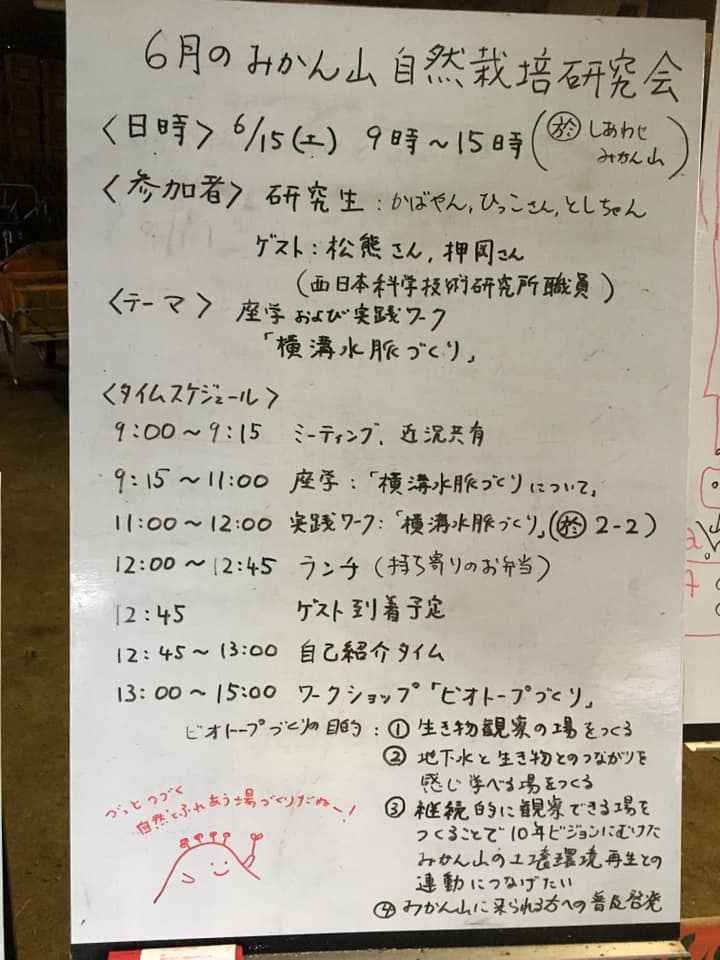 6月のみかん山自然栽培研究会
〈日時〉 6/15(土) 9時〜15時(於 しあわせ
みかん山)
〈参加者〉 研究生：かばやん,ひっこさん,としちゃん
ゲスト：松熊さん,押岡さん
(西日本科学技術研究所職員)
〈テーマ〉 座学および実践ワーク
「横溝水脈づくり」
〈タイムスケジュール〉
9:00〜9:15 ミーティング、近況共有
9:15〜11:00 座学：「横溝水脈づくりについて」
11:00〜12:00 実践ワーク：「横溝水脈づくり」(於 2-2)
12:00〜12:45 ランチ(持ち寄りのお弁当)
12:45 ゲスト到着予定
12:45〜13:00 自己紹介タイム
13:00〜15:00 ワークショップ「ビオトープづくり」
ビオトープづくりの目的：① 生き物観察の場をつくる
② 地下水と生き物とのつながりを
感じ学べる場をつくる
③ 継続的に観察できる場を
つくることで10年ビジョンにむけた
みかん山の土壌環境再生との
連動につなげたい
④ みかん山に来られる方への普及啓発
づっとつづく
自然とふれあう場づくりだねー！